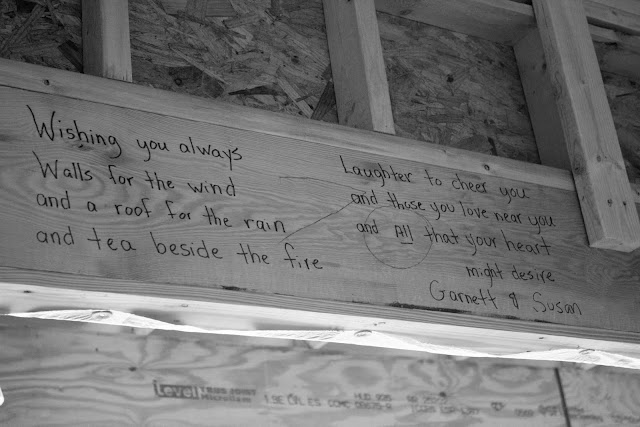 Wishing you always
Walls for the wind
and a roof for the rain
and tea beside the fire
Laughter to cheer you
and those you love near you
and All that your heart
might desire
Garnett & Susan
iLevel TRUS JOIST
Microllam
HUD